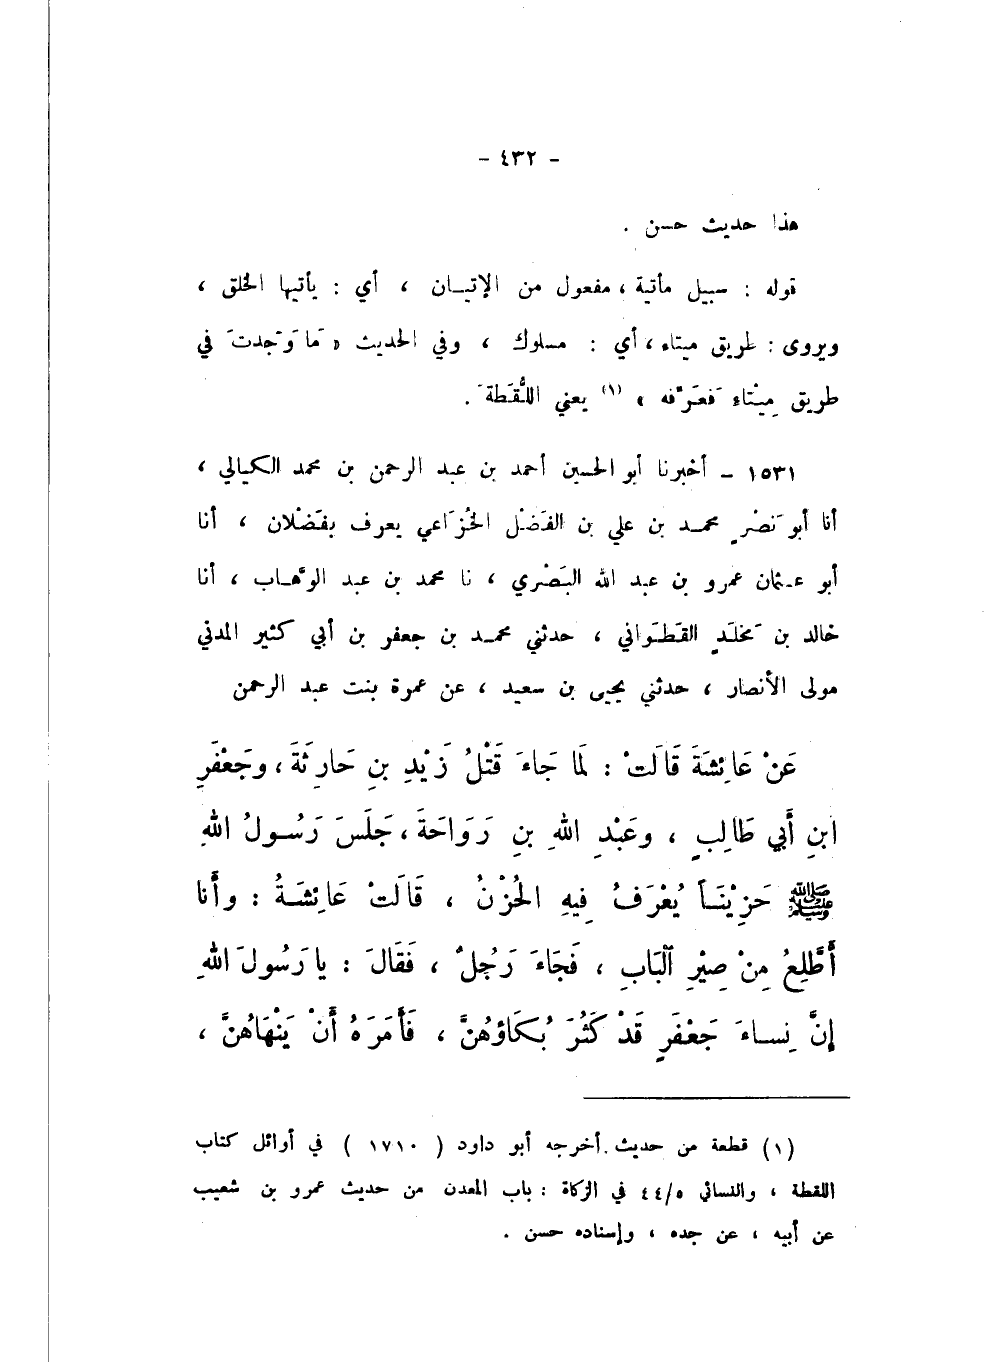 - ٤٣٢ -
هذا حديث حسن .
قوله : سبيل مأتية ، مفعول من الإتيـان ، أي : يأتيها الخلق ،
ويروى : طريق ميتاء ، أي : مسلوك ، وفي الحديث « مَا وَجدتَ في
طريق مِيْتَاءٍ فَعَرِّفه » (١) يعني اللُّقَطَةَ .
١٥٣١ - أخبرنا أبو الحسين أحمد بن عبد الرحمن بن محمد الكيالي ،
أنا أبو نَصْرٍ محمـد بن علي بن الفَضْل الخُزَاعي يعرف بفَضْلان ، أنا
أبو عـثمان عمرو بن عبد الله البَصْري ، نا محمد بن عبد الوهـاب ، أنا
خالد بن مَخلَدٍ القَطَوَاني ، حدثني محمـد بن جعفر بن أبي كثير المدني
مولى الأنصار ، حدثني يحيى بن سعيد ، عن عمرة بنت عبد الرحمن
عَنْ عَائِشَةَ قَالَتْ : لَمَا جَاءَ قَتْلُ زَيْدِ بنِ حَارِثَةَ ، وجَعْفَرِ
ابنِ أَبي طَالِبٍ ، وعَبْدِ اللهِ بنِ رَوَاحَةَ ، جَلَسَ رَسُـولُ اللهِ
ﷺ حَزِيْنَـاً يُعْرَفُ فِيهِ الحُزْنُ ، قَالَتْ عَائِشَـةُ : وأَنا
أَطَّلِعُ مِنْ صِيْرِ ٱلبَابِ ، فَجَاءَ رَجُلٌ ، فَقَالَ : يا رَسُولَ اللهِ
إِنَّ نِسـاءَ جَعْفَرٍ قَدْ كَثُرَ بُكَاؤُهُنَّ ، فَأَمَرَهُ أَنْ يَنْهَاهُنَّ ،
(١) قطعة من حديث أخرجه أبو داود ( ١٧١٠ ) في أوائل كتاب
اللقطة ، والنسائي ٤٤/٥ في الزكاة : باب المعدن من حديث عمرو بن شعيب
عن أبيه ، عن جده ، وإسناده حسن .